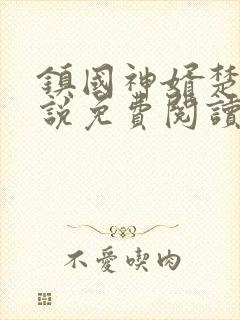 鎮國神婿楚
說免費閱讀
不愛喫肉